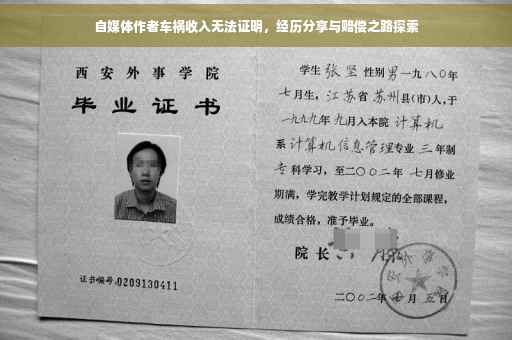 自媒体作者车祸收入无法证明，经历分享与赔偿之路探索
西安外事学院
毕业证书
证书编号:0209130411
学生 张坚 性别男一九八〇年
七月生，江苏省 苏州县(市)人,于
一九九九年 九月入本院 计算机
系 计算机信息管理专业 三 年制
专 科学习，至二〇〇二年 七月修业
期满，学完教学计划规定的全部课程，
成绩合格，准予毕业。
院 长
二〇〇二年 月 五日